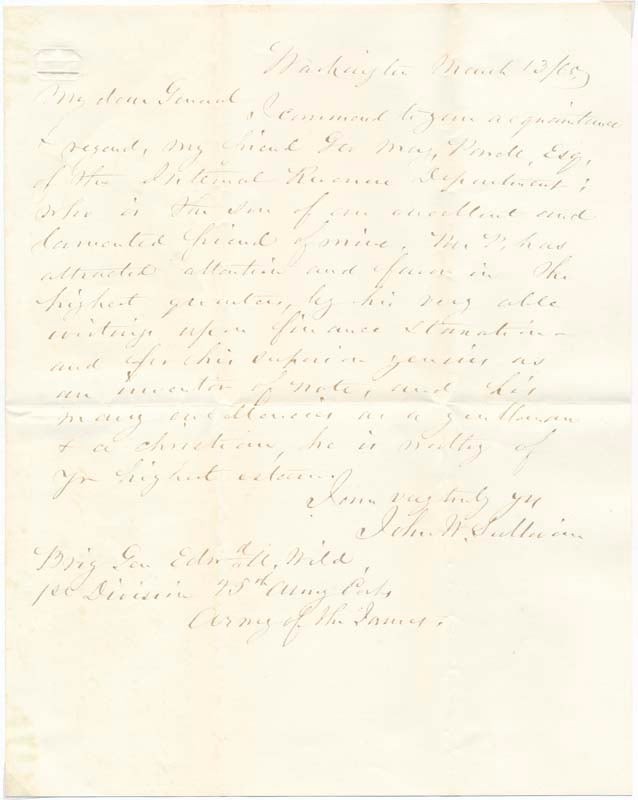 Washington March 13/65
My dear General
I commend to your acquaintance
& regard, my friend Geo May, Esq,
of the Internal Revenue Department;
who is the son of an excellent and
lamented friend of mine. Mr P. has
attracted attention and favor in the
highest quarters, by his very able
writings upon finance &
and for his superior genius as
an inventor of note, and his
many excellencies as a gentleman
& a christian, he is worthy of
yr highest esteem.
I am very truly yrs
John W. Sullivan
Brig Gen Edwd A. Wild,
1st Division 25th Army Corps
Army of the James.